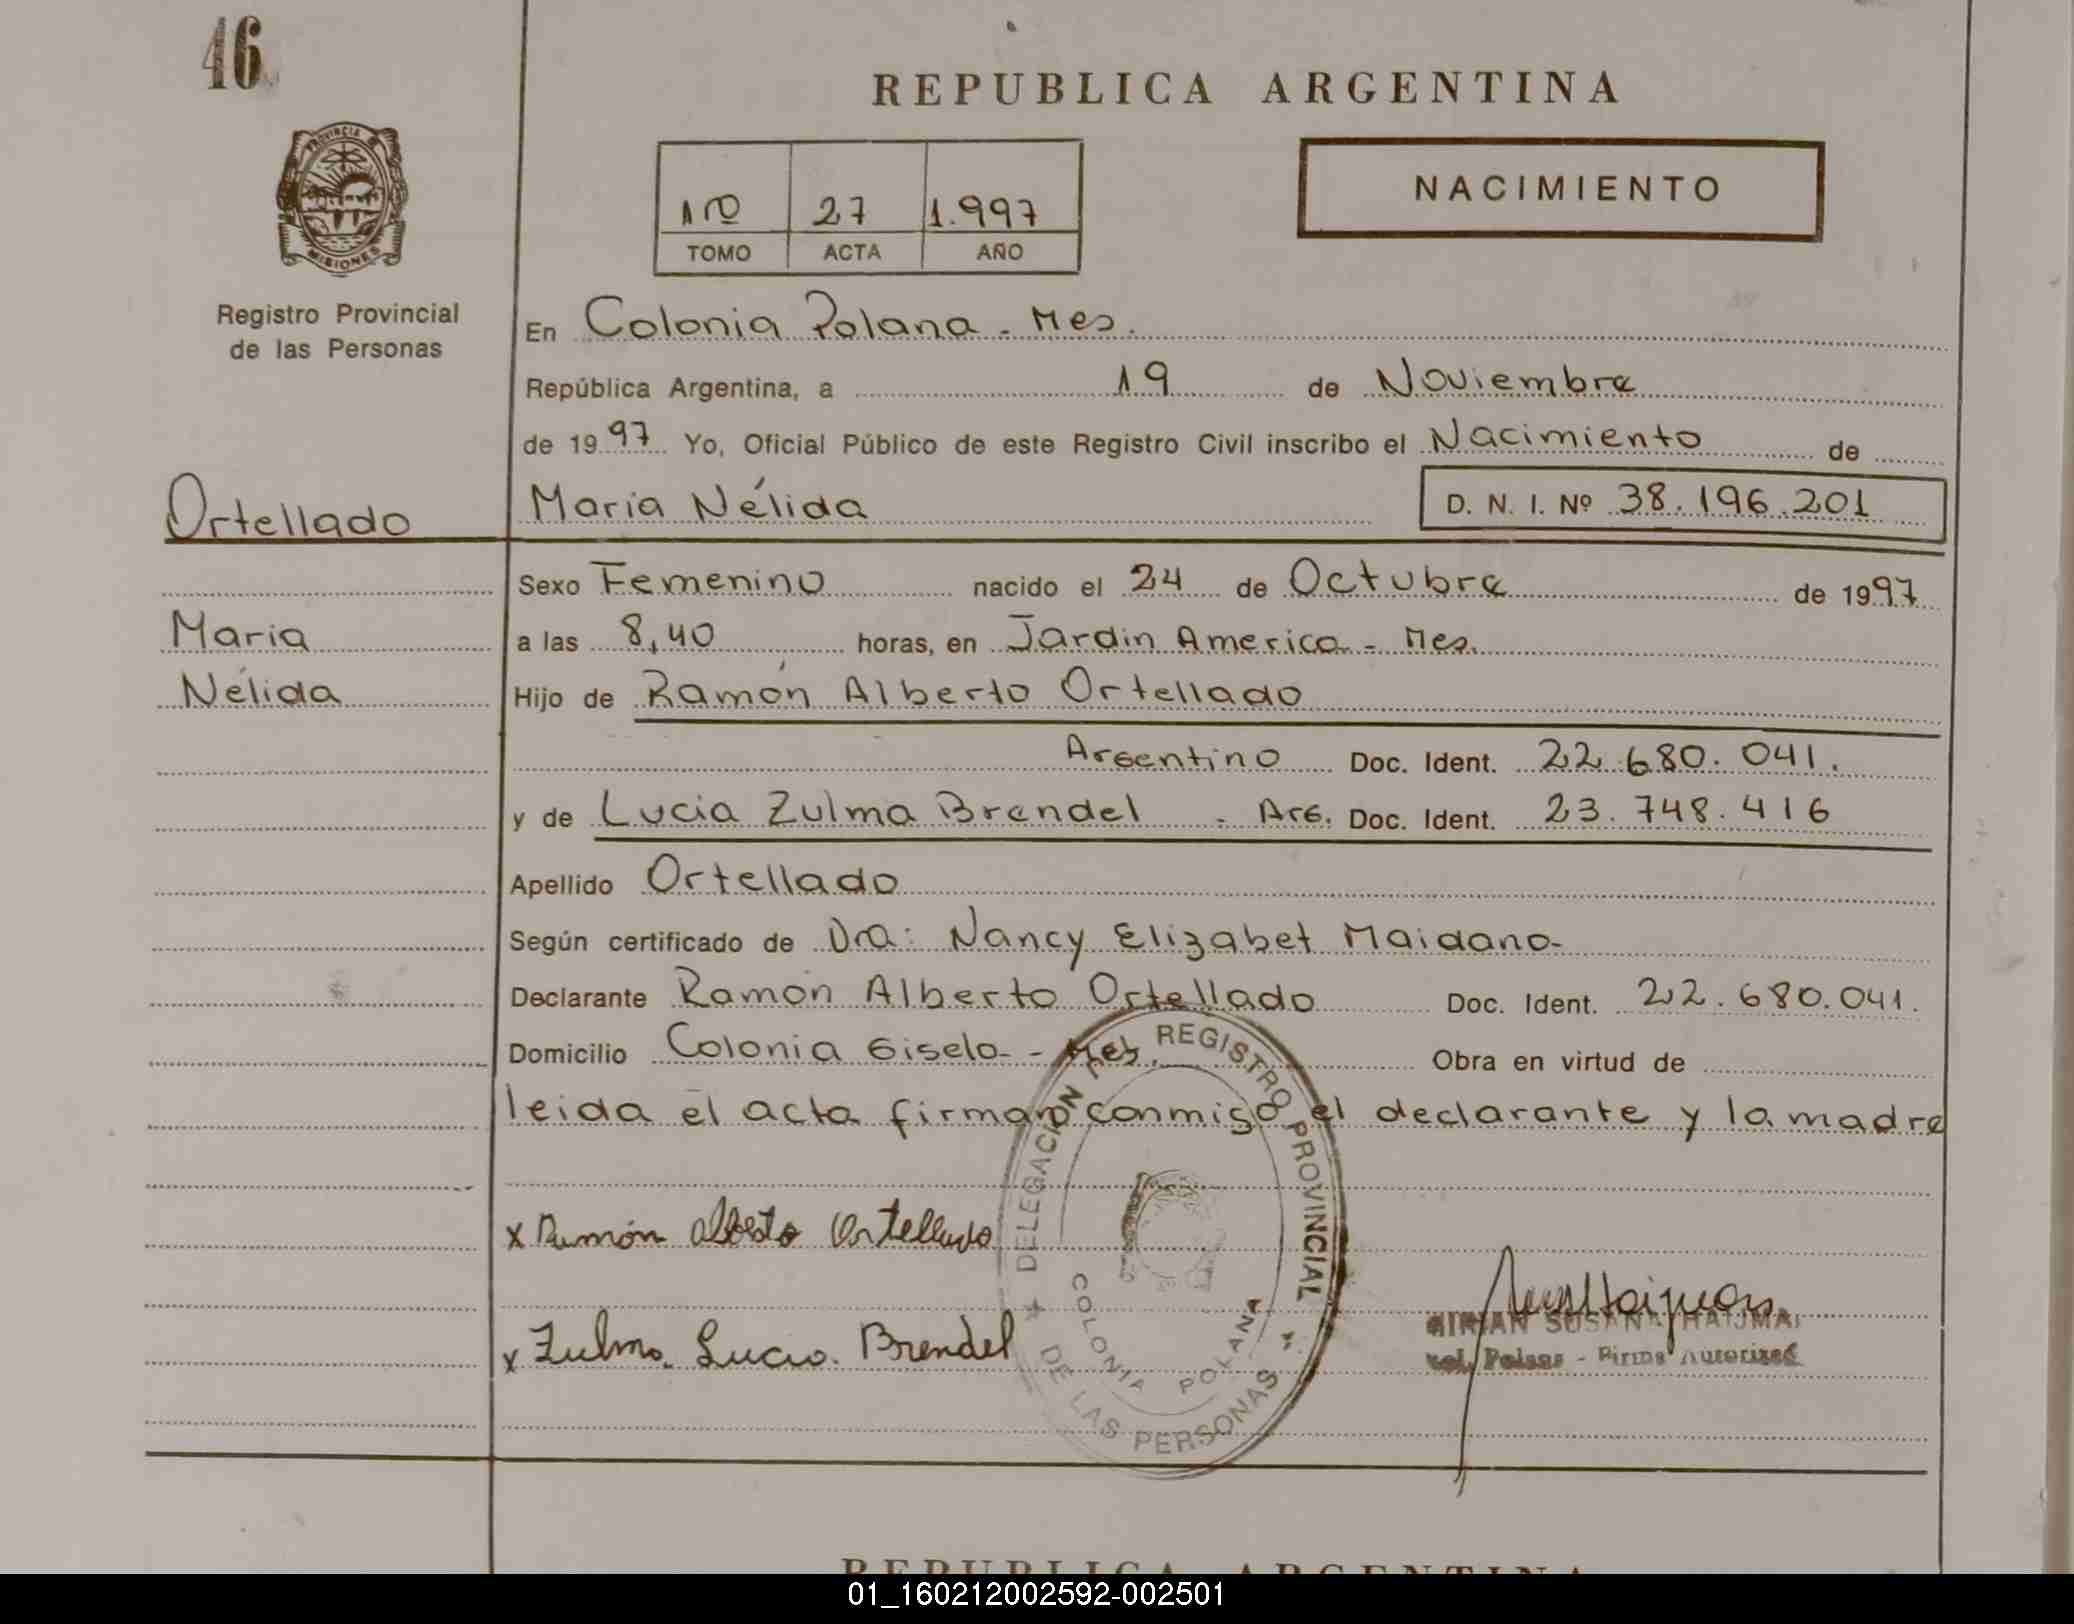 46
REPUBLICA ARGENTINA
PROVINCIA
MISIONES
NACIMIENTO
1ro 27 1.997
TOMO ACTA AÑO
Registro Provincial
de las Personas
En Colonia Polana - Mes.
República Argentina, a 19 de Noviembre
de 1997 Yo, Oficial Público de este Registro Civil inscribo el Nacimiento de
Ortellado María Nélida D. N. I. Nº 38.196.201
Sexo Femenino nacido el 24 de Octubre de 1997
Maria a las 8,40 horas, en Jardin America - Mes.
Nélida Hijo de Ramón Alberto Ortellado
Argentino Doc. Ident. 22.680.041.
y de Lucia Zulma Brendel - Arg. Doc. Ident. 23.748.416
Apellido Ortellado
Según certificado de Dra: Nancy Elizabet Maidana-
Declarante Ramón Alberto Ortellado Doc. Ident. 22.680.041.
Domicilio Colonia Gisela - Mes. Obra en virtud de
leida el acta firman conmigo el declarante y la madre
x Ramón Alberto Ortellado
x Zulma Lucia Brendel
DELEGACION DEL REGISTRO PROVINCIAL
DE LAS PERSONAS
COLONIA POLANA
SUSANA
Firma Autorizad
REPUBLICA ARGENTINA
01_160212002592-002501